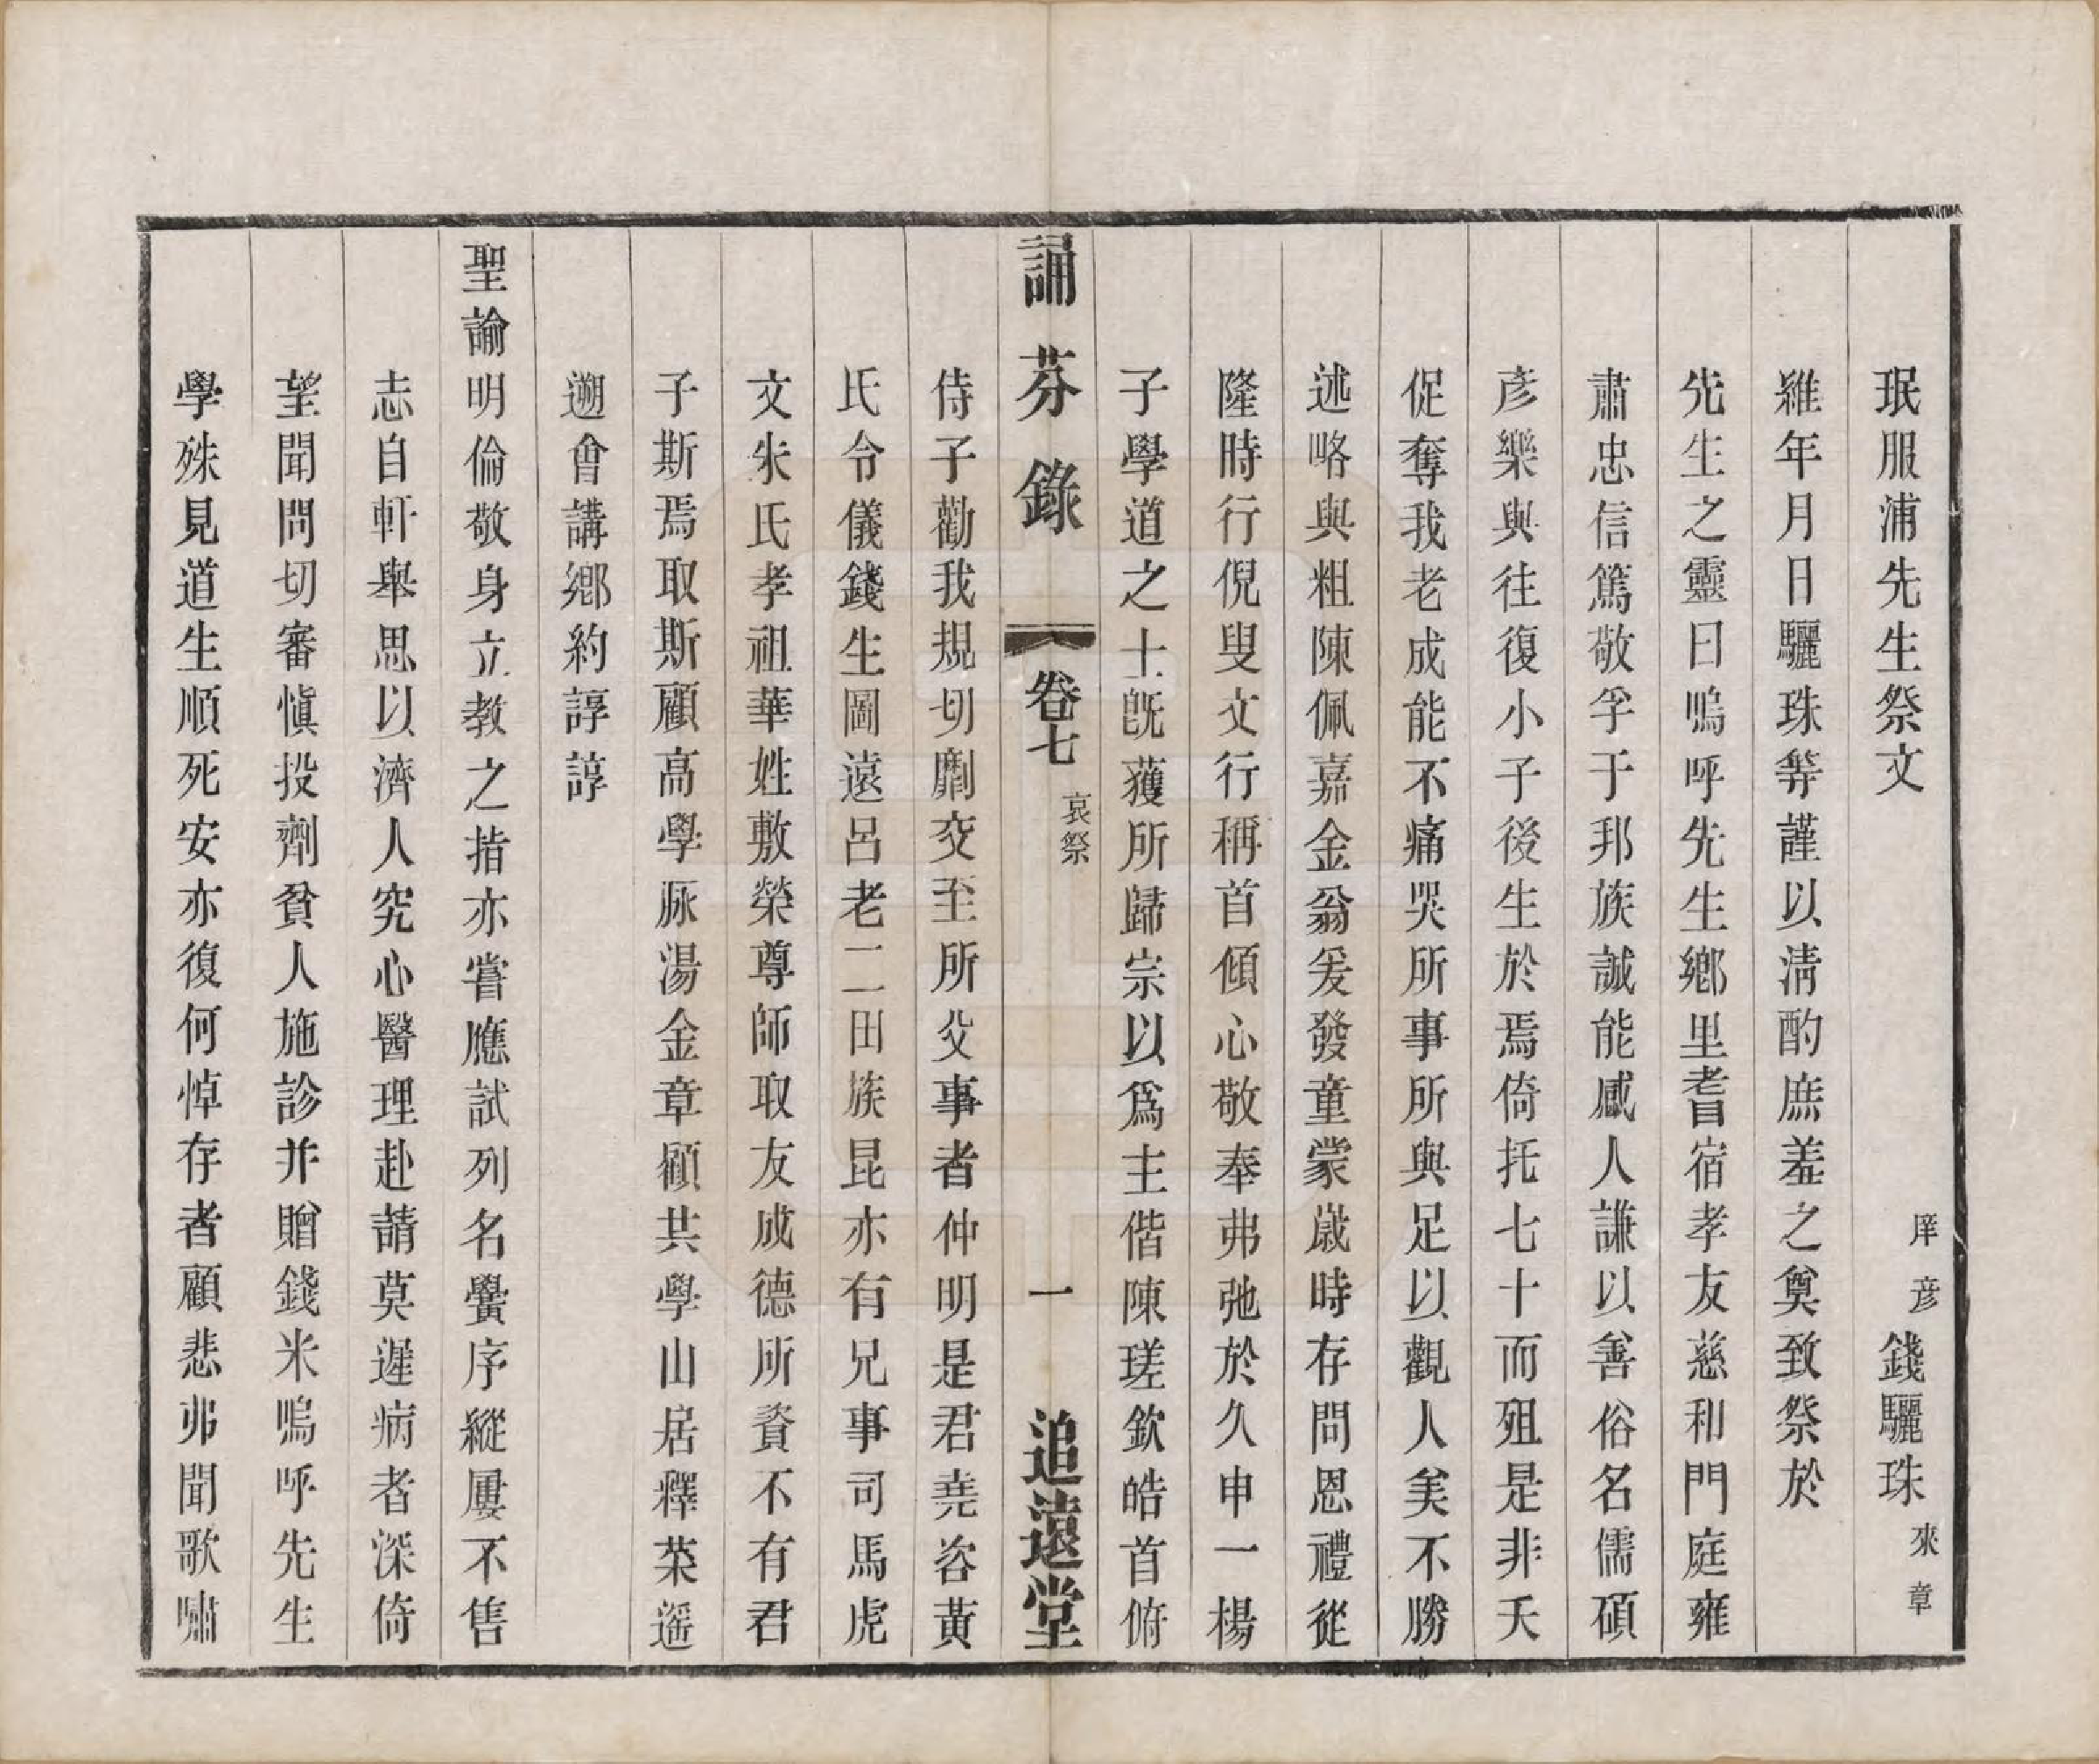 珉服浦先生祭文　庠彥　錢驪珠　來章
維年月日驪珠等謹以淸酌庶羞之奠致祭於
先生之靈曰嗚呼先生鄉里耆宿孝友慈和門庭雍
肅忠信篤敬孚于邦族誠能感人謙以善俗名儒碩
彥樂與往復小子後生於焉倚托七十而殂是非夭
促奪我老成能不痛哭所事所與足以觀人美不勝
述略與粗陳佩嘉金翁爰發童蒙歲時存問恩禮從
隆時行倪叟文行稱首傾心敬奉弗弛於久申一楊
子學道之士旣獲所歸宗以爲主偕陳瑳欽皓首俯
誦芬錄　卷七　哀祭　一　追遠堂
侍子勸我規切劘交至所父事者仲明是君堯咨黃
氏令儀錢生圖遠呂老二田族昆亦有兄事司馬虎
文朱氏孝祖華姓敷榮尊師取友成德所資不有君
子斯焉取斯顧高學脈湯金章顧共學山居釋菜遥
遡會講鄉約諄諄
聖諭明倫敬身立教之指亦嘗應試列名黌序縱屢不售
志自軒舉思以濟人究心醫理赴請莫遲病者深倚
望聞問切審愼投劑貧人施診并贈錢米嗚呼先生
學殊見道生順死安亦復何悼存者顧悲弗聞歌嘯